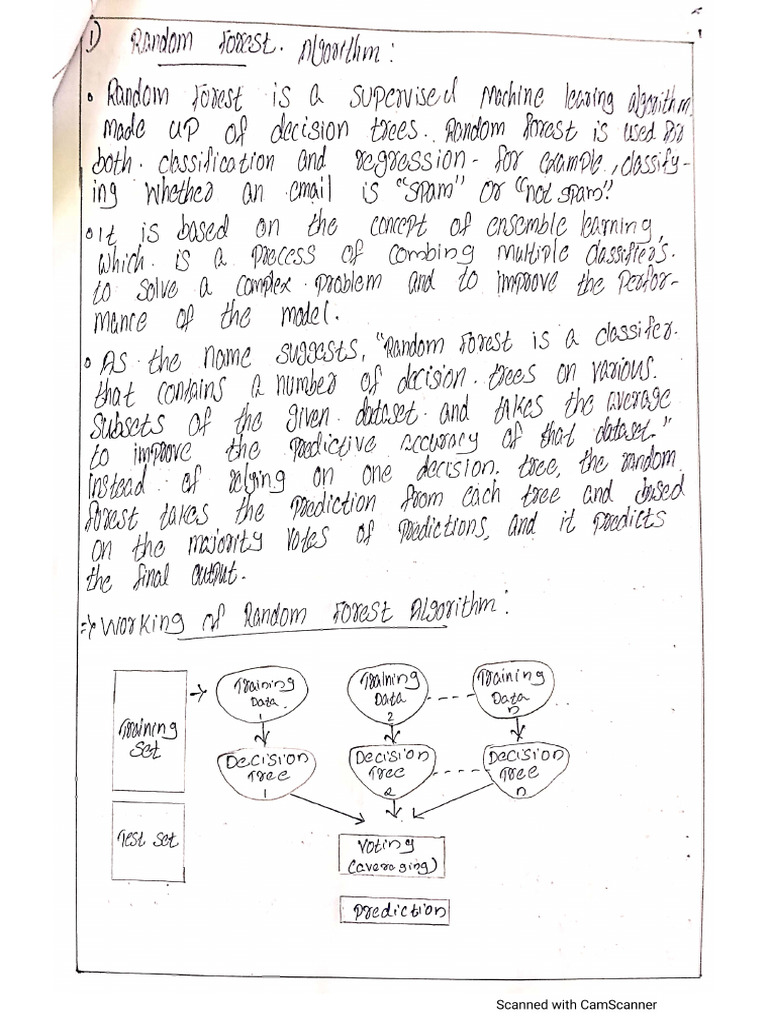 1) Random Forest Algorithm:
• Random forest is a supervised Machine learing algorithm
made up of decision trees. Random forest is used for
both classification and regression - for example, classify-
ing whether an email is "spam" or "not spam".
• It is based on the concept of ensemble learning,
which is a process of combing multiple classifiers.
to solve a complex problem and to improve the perfor-
mance of the model.
• As the name suggests, "Random Forest is a classifer.
that contains a number of decision trees on various.
subsets of the given dataset and takes the average
to improve the predictive accuracy of that dataset."
instead of relying on one decision tree, the random
forest takes the prediction from each tree and based
on the majority votes of predictions, and it predicts
the final output.
=> Working of Random Forest Algorithm:
Training Set
Training Data 1
Training Data 2
Training Data n
Decision Tree 1
Decision Tree 2
Decision Tree n
Test Set
Voting
(averaging)
Prediction
Scanned with CamScanner